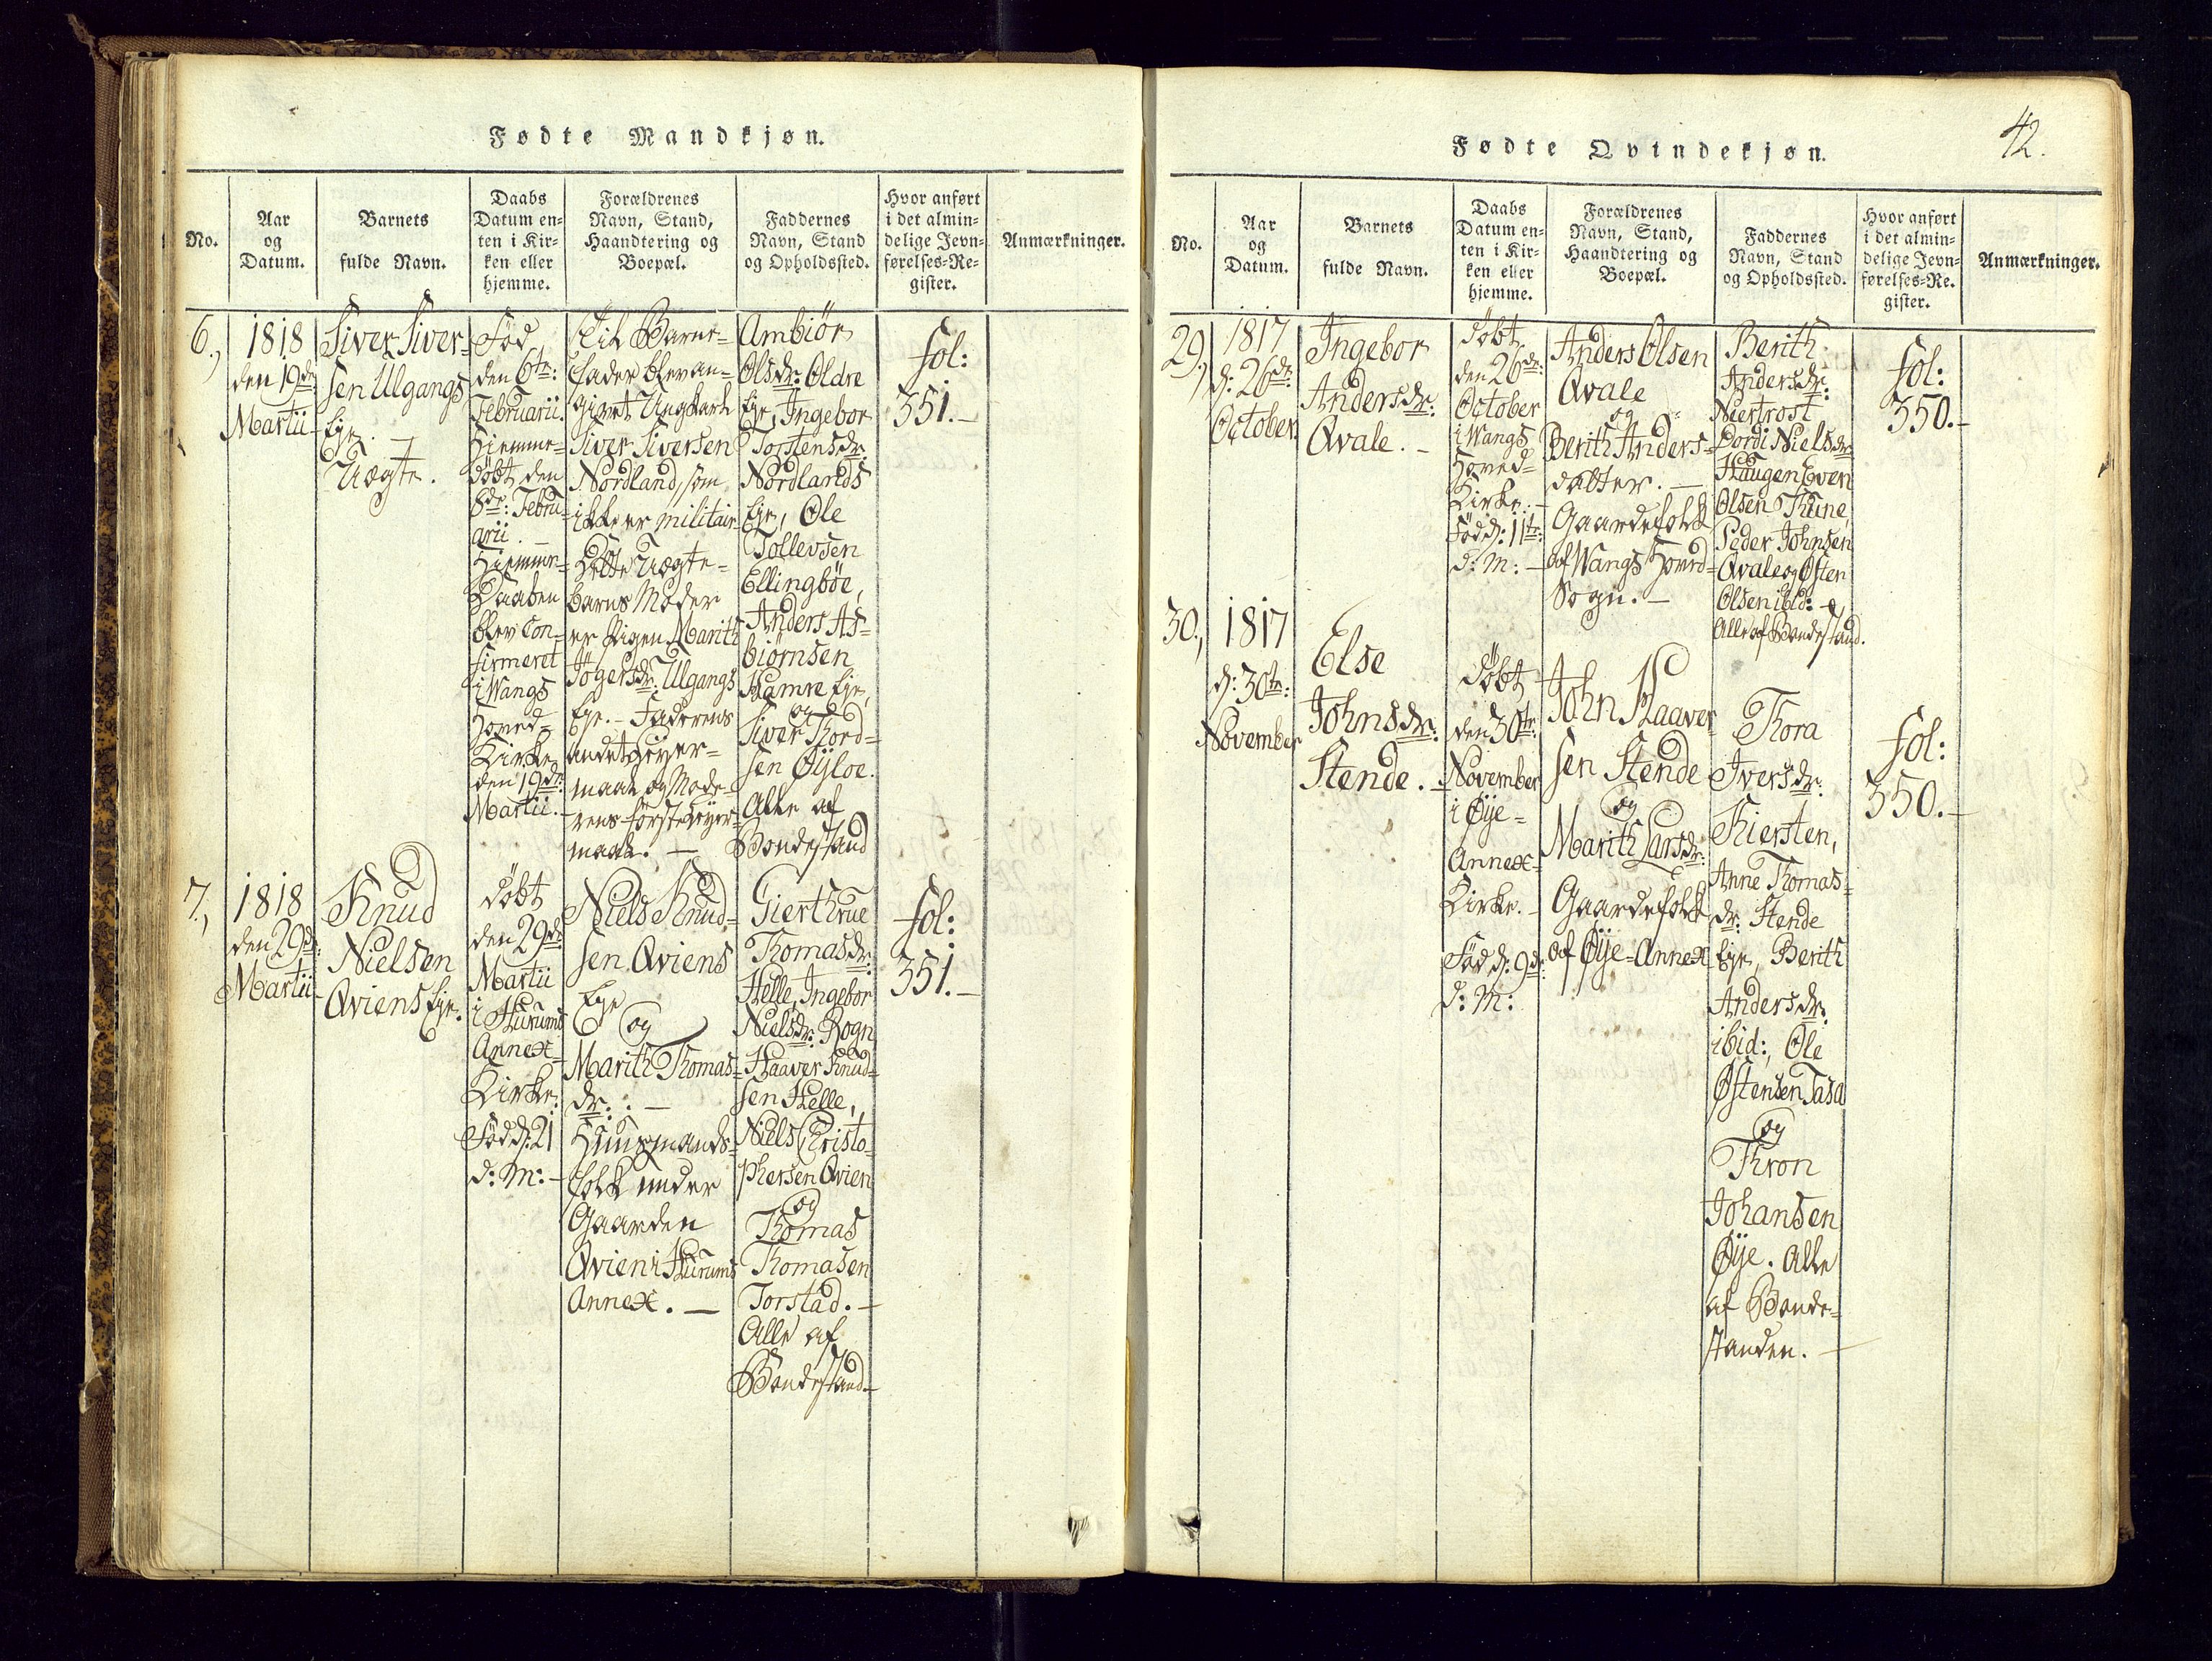 Fødte Mandkjøn.
No.
Aar
og
Datum.
Barnets
fulde Navn.
Daabs
Datum en-
ten i Kir-
ken eller
hjemme.
Forældrenes
Navn, Stand,
Haandtering og
Boepæl.
Faddernes
Navn, Stand
og Opholdssted.
Hvor anført
i det almin-
delige Jevn-
førelses-Re-
gister.
Anmærkninger.
6.,
1818
den 19de
Martii
Siver Siver-
sen Ulgangs
Eje. -
Uægte.
Fød
den 6te:
Februarii.
Hiemme-
døbt den
8de: Febru-
arii. -
Hiemme-
Daaben
blev Con-
firmeret
i Wangs
Hoved-
Kirke
den 19de
Martii. -
Til Barne-
Fader blev an-
givet Ungkarl
Siver Siversen
Nordland, som
ikke er militair
Dette Uægte-
barns Moder
er Pigen Marith
Jögersdr: Ulgangs
Eje. - Faderens
andet Leyer-
maal og Mode-
rens første Leyer-
maal. -
Ambiör
Olsdr: Oldre
Eje, Ingebor
Torstensdr:
Nordlands
Eje, Ole
Tollevsen
Ellingböe,
Anders As-
biörnsen
Hamre Eje,
og
Siver Thord-
sen Øÿloe.
Alle af
Bondestand
fol:
351. -
7.,
1818
den 29de:
Martii
Knud
Nielsen
Qviens Eje.
döbt
den 29de
Martii
i Hurums
Annex-
Kirke.
Fød d: 21
d: M: -
Niels Knud-
sen Qviens
Eje
og
Marith Thomas-
dr: -
Huusmands-
folk under
Gaarden
Qvien i Hurums
Annex. -
Gierthrue
Thomasdr:
Helle, Ingebor
Nielsdr: Rogn
Haaver Knud-
sen Helle,
Niels Christo-
phersen Qvien
og
Thomas
Thomasen
Torstad. -
Alle af
Bondestand -
fol:
351. -
Fødte Qvindekjøn.
42.
No.
Aar
og
Datum.
Barnets
fulde Navn.
Daabs
Datum en-
ten i Kir-
ken eller
hjemme.
Forældrenes
Navn, Stand,
Haandtering og
Boepæl.
Faddernes
Navn, Stand
og Opholdssted.
Hvor anført
i det almin-
delige Jevn-
førelses-Re-
gister.
Anmærkninger.
29.,
1817
d: 26de
October
Ingebor
Andersdr:
Qvale. -
döbt
den 26de:
October
i Wangs
Hoved-
Kirke. -
Fød d: 11te:
d: M: -
Anders Olsen
Qvale
og
Berith Anders-
datter. -
Gaardefolk
af Wangs Hoved-
Sogn. -
Berith
Andersdr:
Niertrost
Gordi Nielsdr
Haugen Even
Olsen Thune,
Peder Johnsen
Qvale og Østen
Olsen ibid: -
Alle af Bondestand.
fol:
350. -
30.,
1817
d: 30te:
November
Else
Johnsdr:
Stende. -
döbt
den 30te:
November
i Øÿe-
Annex-
Kirke. -
Fød d: 9de:
d: M:
John Haaver-
sen Stende
og
Marith Larsdr:
Gaardefolk
af Øÿe-Annex
Thora
Iversdr:
Kiersten,
Anne Thomas-
dr: Stende
Eje, Berith
Andersdr:
ibid:, Ole
Østensen Tasa
og
Thron
Johansen
Øÿe. Alle
af Bonde-
standen. -
fol:
350. -